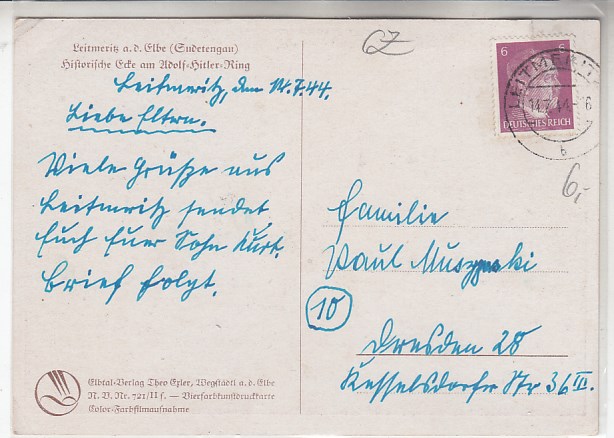 Leitmeritz a. d. Elbe (Sudetengau)
Historische Ecke am Adolf-Hitler-Ring
Leitmeritz, den 14.7.44.
Liebe Eltern.
Viele Grüße aus
Leitmeritz sendet
Euch Euer Sohn Kurt.
Brief folgt.
Elbtal-Verlag Theo Exler, Wegstädtl a. d. Elbe
N. V. Nr. 721/II f. – Vierfarbkunstdruckkarte
Color-Farbfilmaufnahme
6 6
DEUTSCHES REICH
LEITMERITZ
14.7.44
b
6,-
Familie
Paul
10
Dresden 28
Kesselsdorfer Str 36 III.